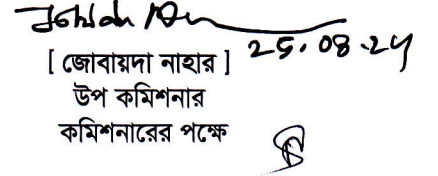 25.08.24
[ জোবায়দা নাহার ]
উপ কমিশনার
কমিশনারের পক্ষে